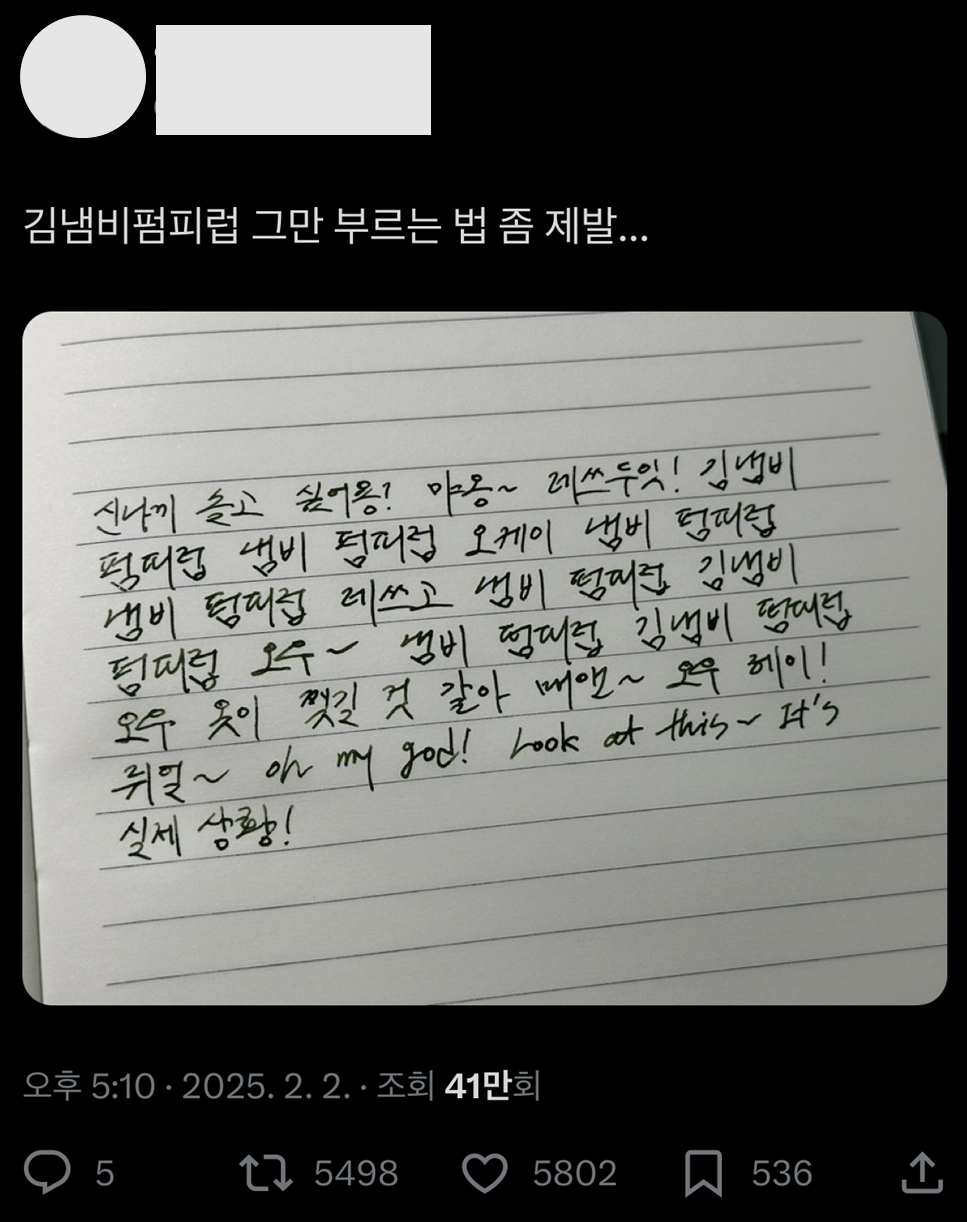 김냄비펌피럽 그만 부르는 법 좀 제발...
신나게 놀고 싶어용? 야옹~ 레쓰두잇! 김냄비
펌피럽 냄비 펌피럽 오케이 냄비 펌피럽
냄비 펌피럽 레쓰고 냄비 펌피럽 김냄비
펌피럽 오우~ 냄비 펌피럽 김냄비 펌피럽
오우 옷이 찢길 것 같아 매앤~ 오우 헤이!
뤼얼~ oh my god! Look at this~ It's
실제 상황!
오후 5:10 · 2025. 2. 2. · 조회 41만회
5 5498 5802 536